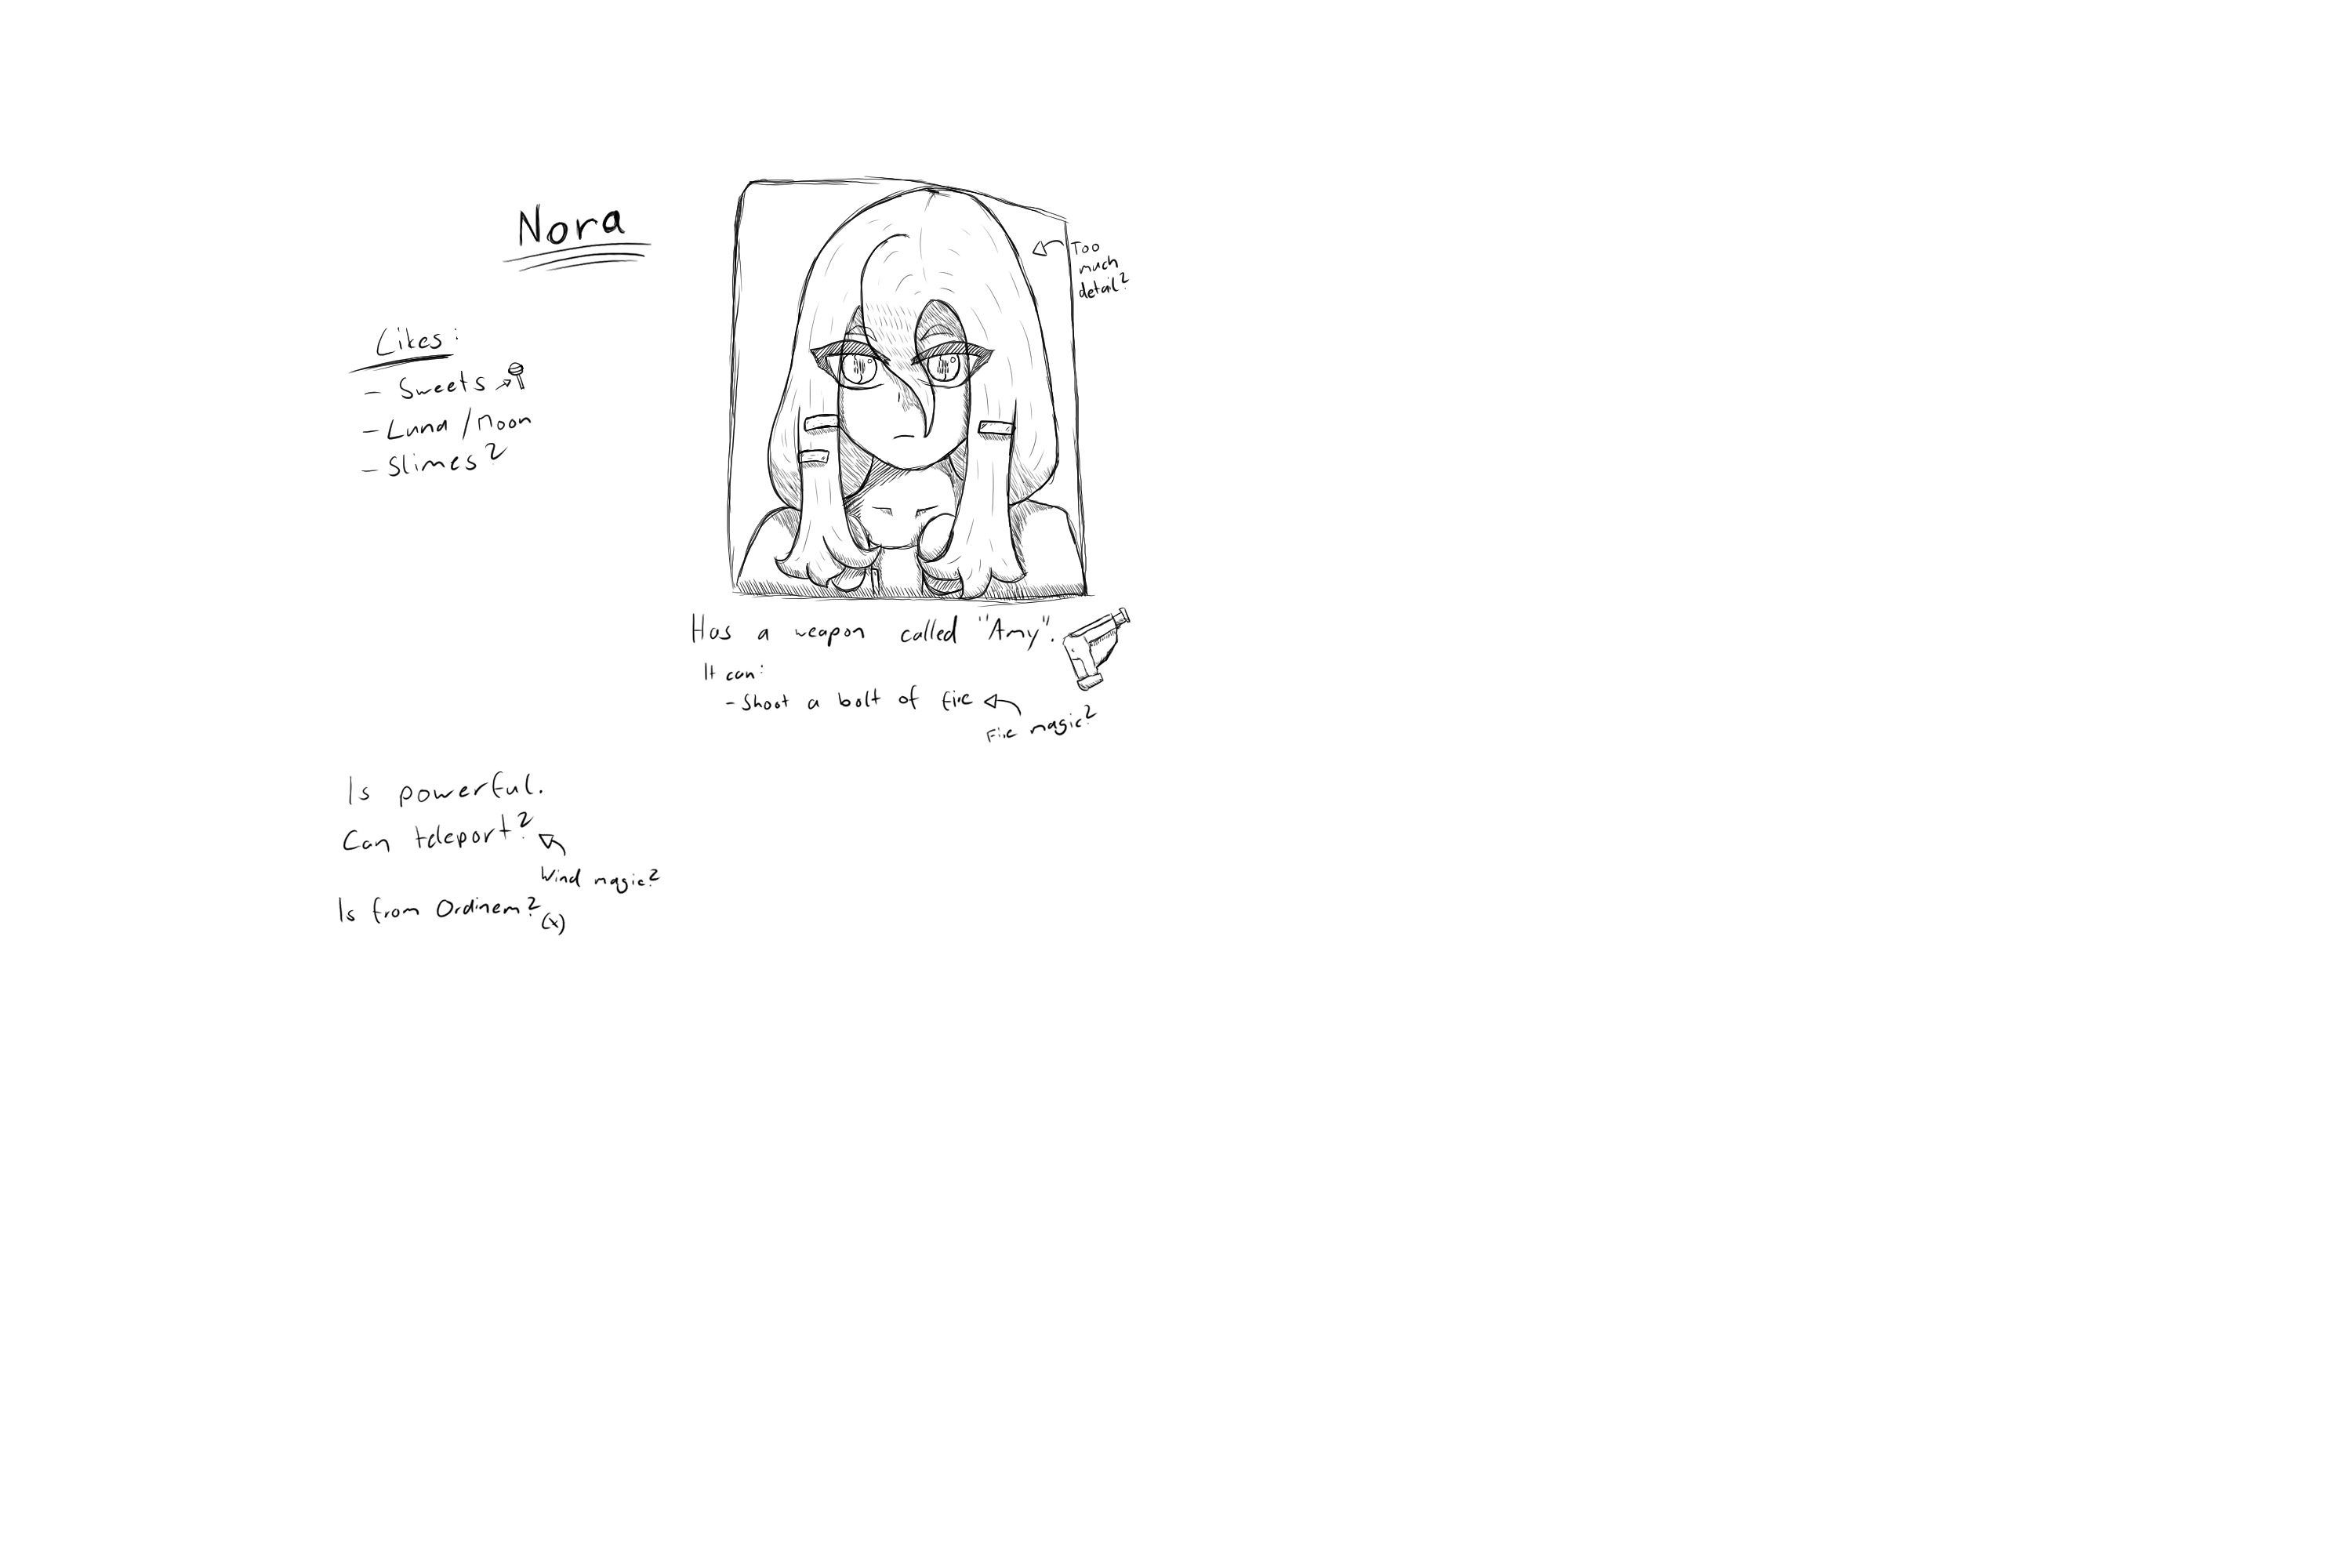 Nora
Too
much
detail?
Likes:
- Sweets
- Luna / Moon
- Slimes?
Has a weapon called "Amy".
It can:
- Shoot a bolt of fire
Fire magic?
Is powerful.
Can teleport?
Wind magic?
Is from Ordinem?
(x)